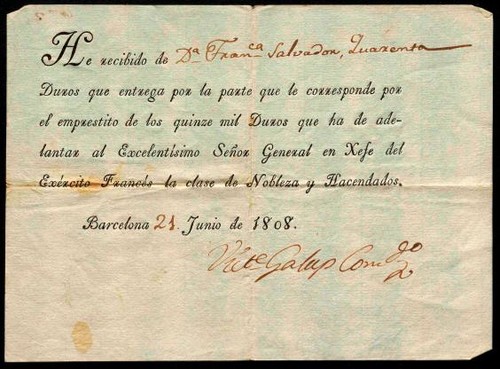 He recibido de Dª Franca. Salvador, Quarenta
Duros que entrega por la parte que le corresponde por
el emprestito de los quinze mil Duros que ha de ade-
lantar al Excelentísimo Señor General en Xefe del
Exército Francés la clase de Nobleza y Hacendados.
Barcelona 21 Junio de 1808.